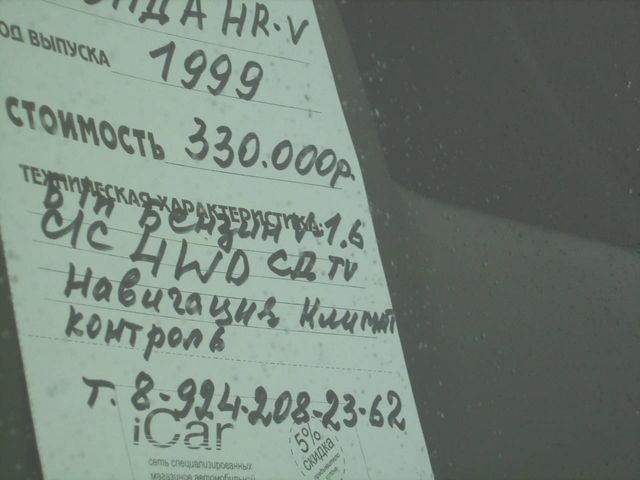 HR-V
ВЫПУСКА 1999
СТОИМОСТЬ 330.000р.
ТЕХНИЧЕСКАЯ ХАРАКТЕРИСТИКА:
Б/п Бензин V-1.6
С/С 4WD СД TV
Навигация Климат
контроль
т. 8-924-208-23-62
iCar
5%
скидка
сеть специализированных
магазинов автомобильной